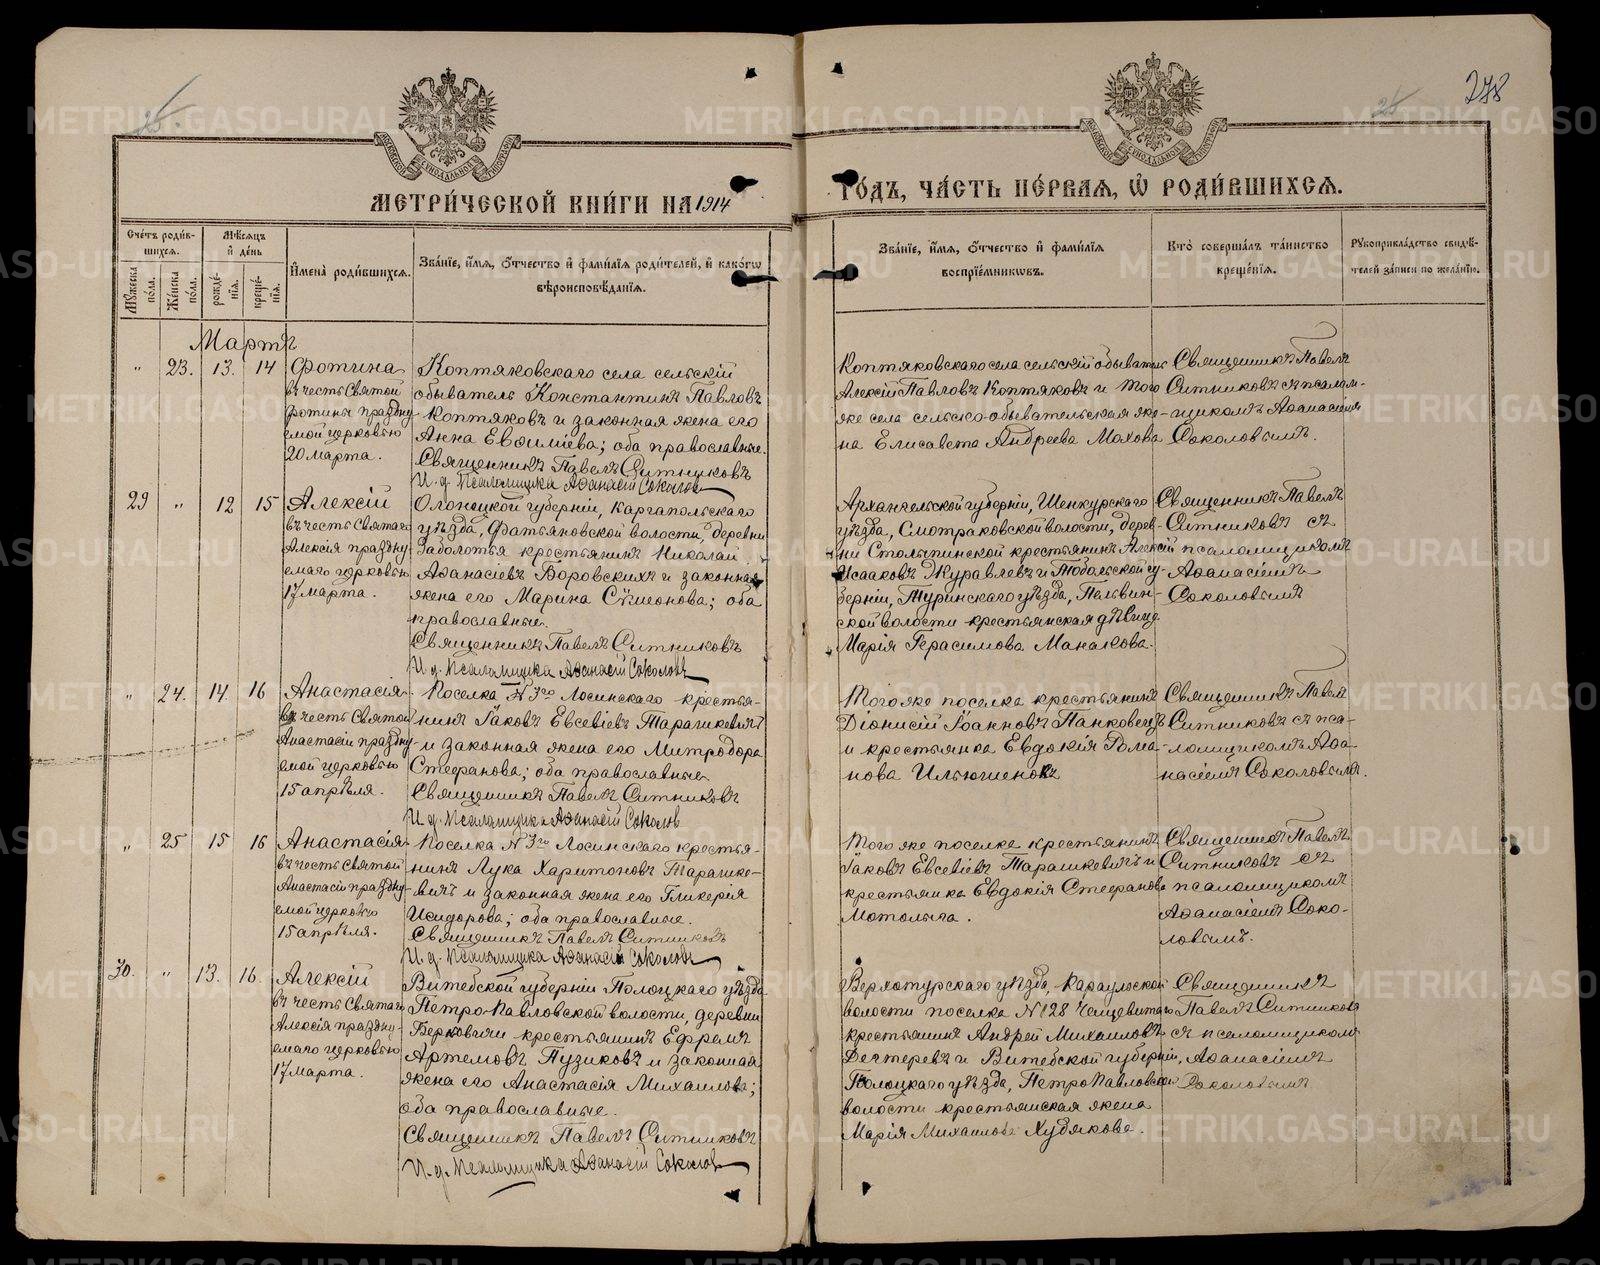 25.
25
278
МЕТРИ́ЧЕСКОЙ КНИ́ГИ НА 1914
ГО́ДЪ, ЧА́СТЬ ПЕ́РВАЯ, Ѽ РОДИ́ВШИХСЯ.
Сче́тъ роди́в-
шихся.
Мꙋ́жеска
по́ла.
Же́нска
по́ла.
Мѣ́сяцъ
и҆ де́нь
рожде́-
нїя.
креще́-
нїя.
И҆мена̀ роди́вшихся.
Зва́нїе, и҆́мя, ѻ҆́тчество и҆ фами́лїя роди́телей, и҆ како́гѡ
вѣроисповѣ́данїя.
Зва́нїе, и҆́мя, ѻ҆́тчество и҆ фами́лїя
воспрїе́мникѡвъ.
Кто̀ соверша́лъ та́инство
креще́нїя.
Рꙋкоприкла́дство свидѣ́-
телей за́писи по жела́нїю.
Мартъ
" 23. 13. 14
Фотина
въ честь Святой
Фотины праздну-
емой церковью
20 марта.
Коптяковскаго села сельскій
обыватель Константинъ Павловъ
Коптяковъ и законная жена его
Анна Евфиміева; оба православные.
Священникъ Павелъ Ситниковъ
И. д. Псаломщика Аѳанасій Соколовъ
Коптяковскаго села сельскій обыватель
Алексій Павловъ Коптяковъ и того
же села сельско-обывательская же-
на Елисавета Андреева Махова
Священникъ Павелъ
Ситниковъ съ псалом-
щикомъ Аѳанасіемъ
Соколовымъ.
29 " 12 15
Алексій
въ честь Святаго
Алексія праздну-
емаго церковью
17 марта.
Олонецкой губерніи, Каргапольскаго
уѣзда, Фатьяновской волости, деревни
Заболотья крестьянинъ Николай
Аѳанасіевъ Боровскихъ и законная
жена его Марина Сѵмеонова; оба
православные.
Священникъ Павелъ Ситниковъ
И. д. Псаломщика Аѳанасій Соколовъ
Архангельской губерніи, Шенкурскаго
уѣзда, Смотраковской волости, дерев-
ни Столыпинской крестьянинъ Алексій
Исааковъ Журавлевъ и Тобольской гу-
берніи, Туринскаго уѣзда, Пелвин-
ской волости крестьянская дѣвица
Марія Герасимова Манакова.
Священникъ Павелъ
Ситниковъ съ
псаломщикомъ
Аѳанасіемъ
Соколовымъ
" 24. 14. 16
Анастасія
въ честь Святой
Анастасіи праздну-
емой церковью
15 апрѣля.
Поселка № 3го Лосинскаго крестья-
нинъ Іаковъ Евсевіевъ Тарашкевичъ
и законная жена его Митродора
Стефанова; оба православные
Священникъ Павелъ Ситниковъ
И. д. Псаломщика Аѳанасій Соколов
Того же поселка крестьянинъ
Діонисій Іоанновъ Панковецъ
и крестьянка Евдокія Рома-
нова Ильюшенокъ
Священникъ Павелъ
Ситниковъ съ пса-
ломщикомъ Аѳа-
насіемъ Соколовымъ.
" 25 15 16
Анастасія
въ честь святой
Анастасіи праздну-
емой церковью
15 апрѣля.
Поселка № 3го Лосинскаго крестья-
нинъ Лука Харитоновъ Тарашке-
вичъ и законная жена его Гликерія
Исидорова; оба православные.
Священникъ Павелъ Ситниковъ
И. д. Псаломщика Аѳанасій Соколовъ
Того же поселка крестьянинъ
Іаковъ Евсевіевъ Тарашкевичъ и
крестьянка Евдокія Стефанова
Мотолыга.
Священникъ Павелъ
Ситниковъ съ
псаломщикомъ
Аѳанасіемъ Соко-
ловымъ.
30. " 13. 16.
Алексій
въ честь Святаго
Алексія праздну-
емаго церковью
17 марта.
Витебской губерніи Полоцкаго уѣзда
Петро-Павловской волости, деревни
крестьянинъ Ефремъ
Артемовъ Пузиковъ и законная
жена его Анастасія Михаилова;
оба православные.
Священникъ Павелъ Ситниковъ
И. д. Псаломщика Аѳанасій Соколовъ
Верхотурскаго уѣзда, Караульской
волости поселка № 128 Чащевитаго
крестьянинъ Андрей Михаиловъ
Дехтеревъ и Витебской губерніи,
Полоцкаго уѣзда, Петропавловской
волости крестьянская жена
Марія Михаилова Худякова.
Священникъ
Павелъ Ситниковъ
съ псаломщикомъ
Аѳанасіемъ
Соколовымъ
METRIKI.GASO-URAL.RU